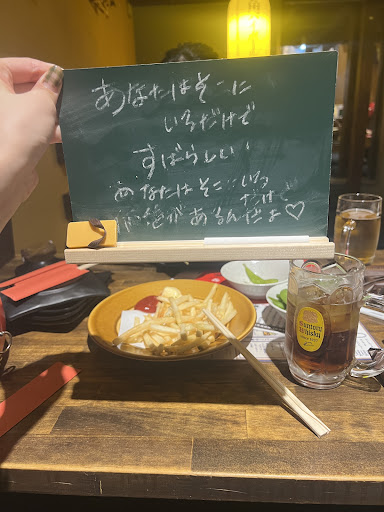 角
あなたはそこに
いるだけで
すばらしい
あなたはそこにいる
だけで
価値があるんだよ♡
Suntory
Whisky